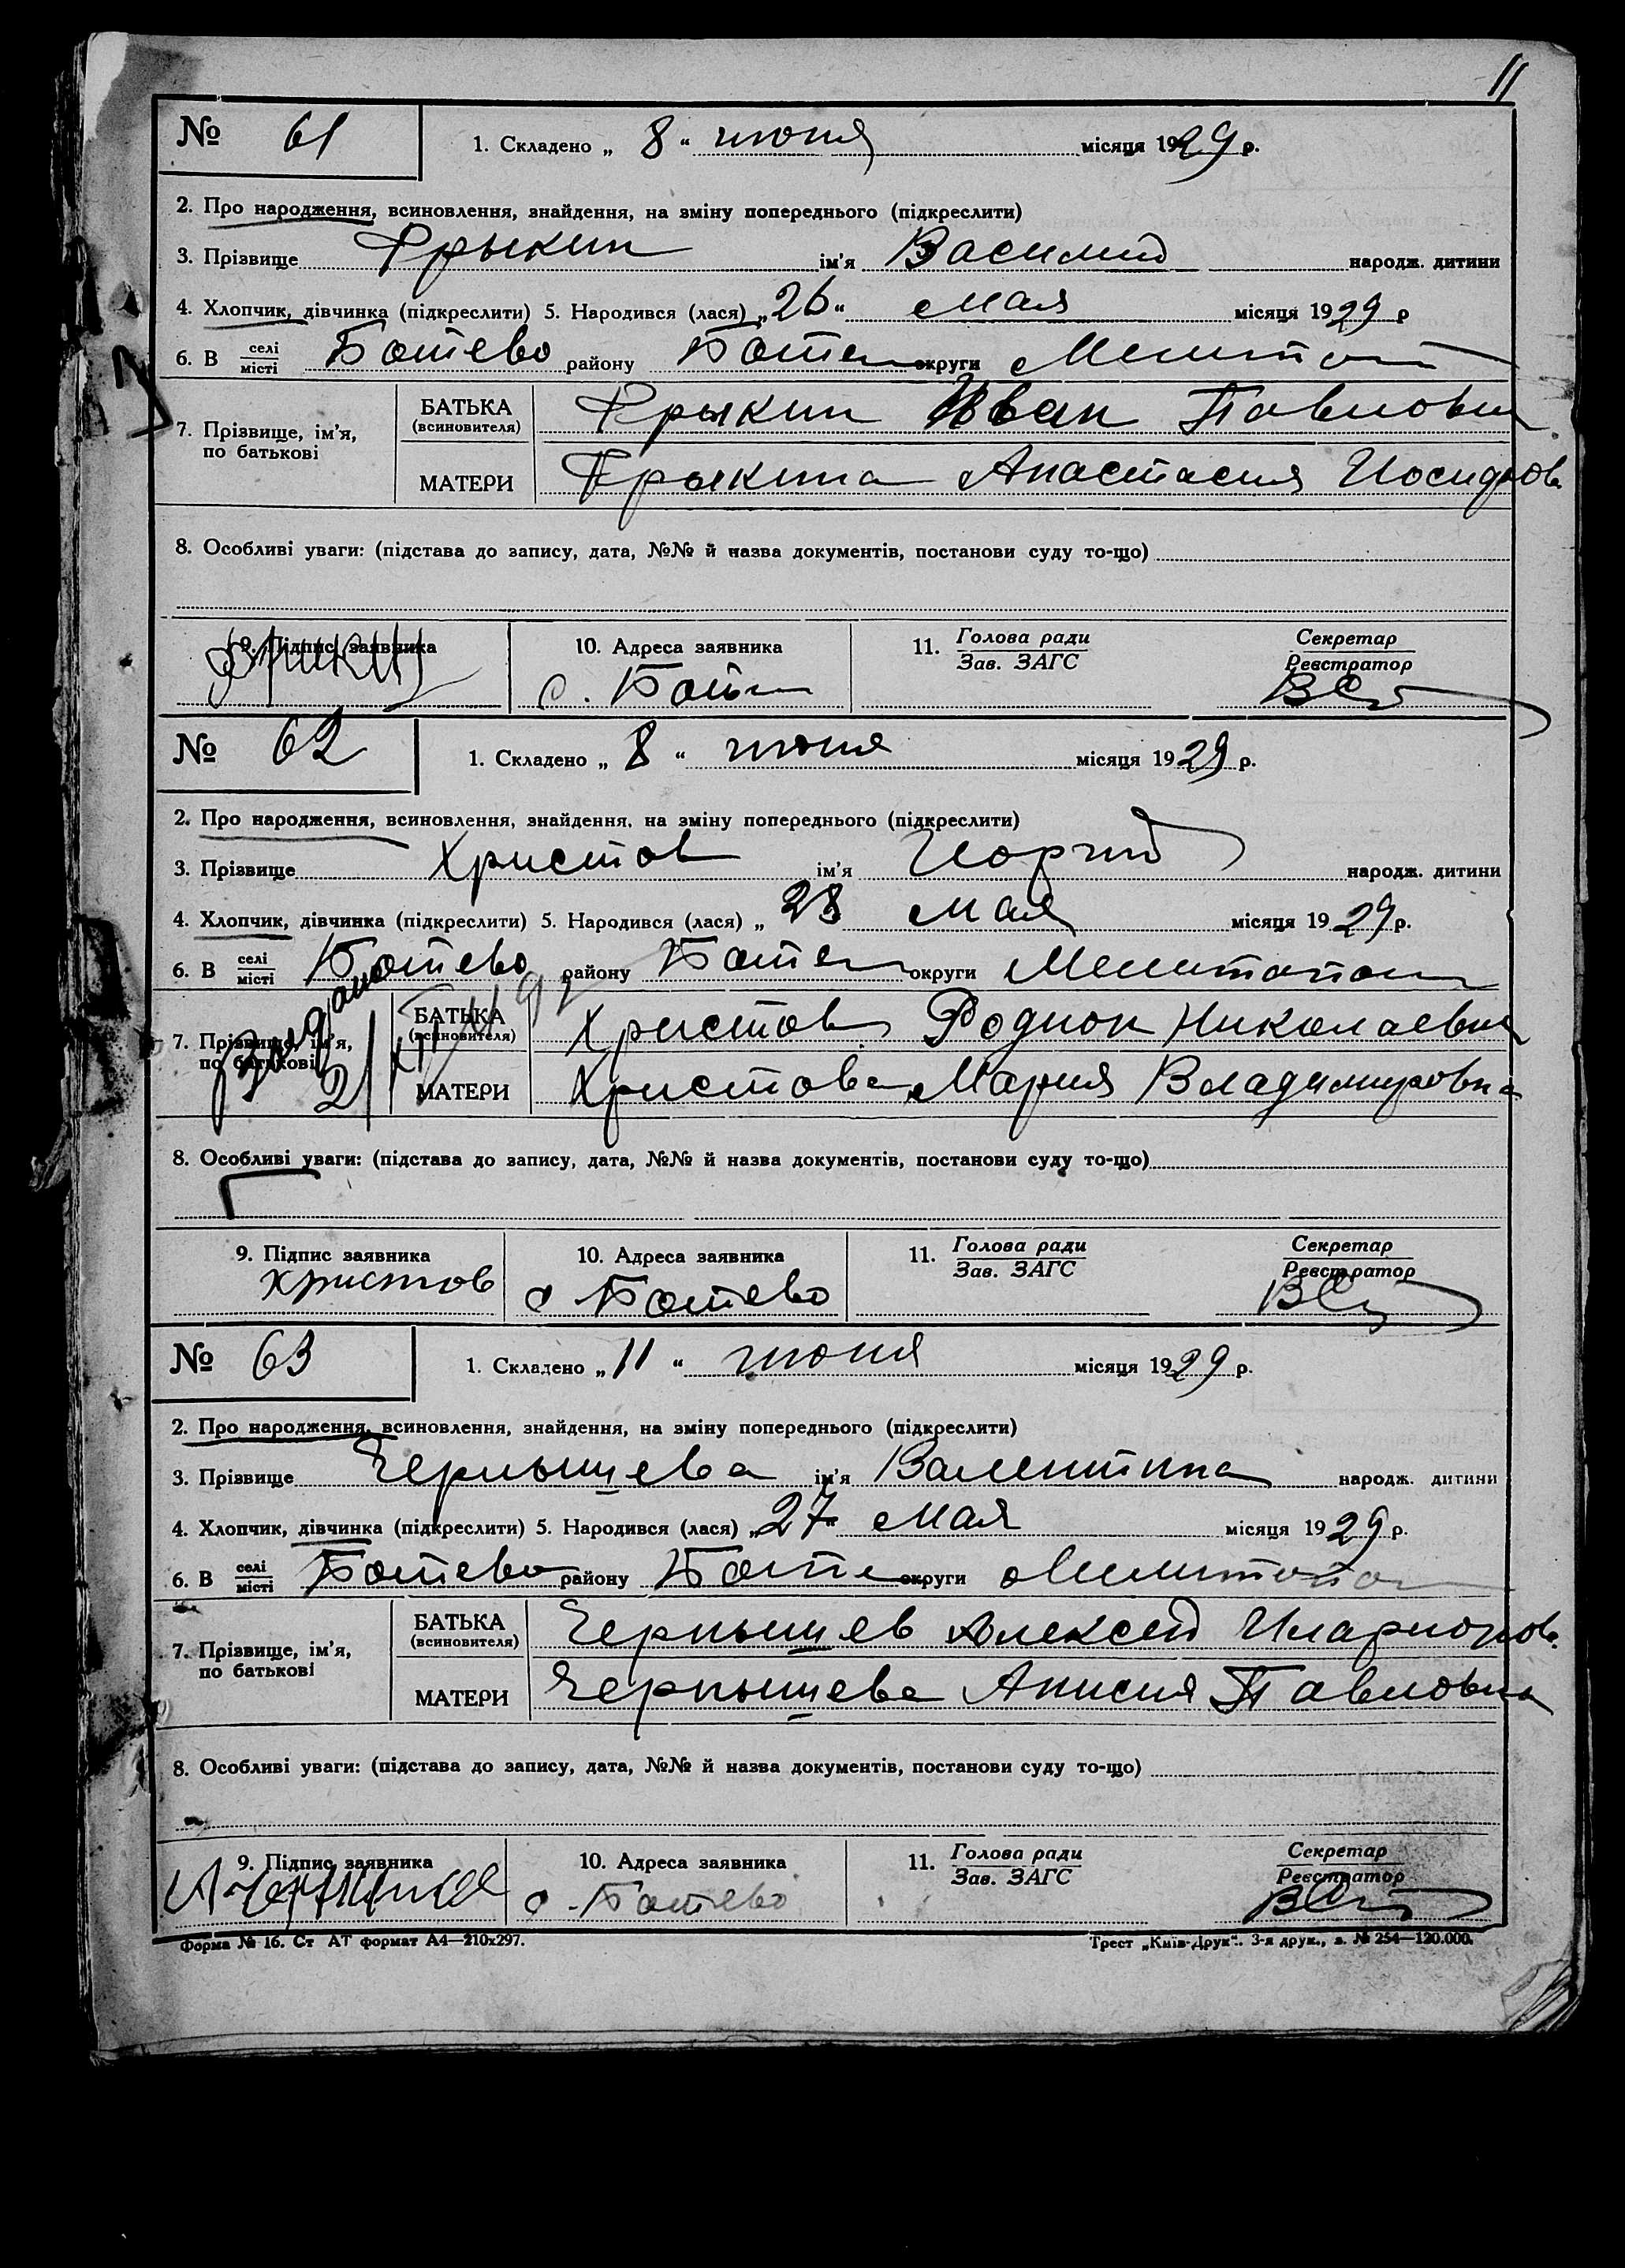 11
№ 61 1. Складено „ 8 “ июня місяця 1929 р.
2. Про народження, всиновлення, знайдення, на зміну попереднього (підкреслити)
3. Прізвище Фрыкин ім'я Василий народж. дитини
4. Хлопчик, дівчинка (підкреслити) 5. Народився (лася) „ 26 “ мая місяця 1929 р
6. В селі/місті Ботево району Ботев округи Мелитоп
7. Прізвище, ім'я, по батькові
БАТЬКА (всиновителя) Фрыкин Иван Павлович
МАТЕРИ Фрыкина Анастасия Иосифов.
8. Особливі уваги: (підстава до запису, дата, №№ й назва документів, постанови суду то-що)
9. Підпис заявника 10. Адреса заявника 11. Голова ради/Зав. ЗАГС Секретар/Реєстратор
Фрикин с. Ботев
№ 62 1. Складено „ 8 “ июня місяця 1929 р.
2. Про народження, всиновлення, знайдення, на зміну попереднього (підкреслити)
3. Прізвище Христов ім'я Иоргий народж. дитини
4. Хлопчик, дівчинка (підкреслити) 5. Народився (лася) „ 28 мая місяця 1929 р.
6. В селі/місті Ботево району Ботев округи Мелитопол
7. Прізвище, ім'я, по батькові
БАТЬКА (всиновителя) Христов Родион Николаевич
МАТЕРИ Христова Мария Владимировна
8. Особливі уваги: (підстава до запису, дата, №№ й назва документів, постанови суду то-що)
9. Підпис заявника 10. Адреса заявника 11. Голова ради/Зав. ЗАГС Секретар/Реєстратор
Христов с Ботево
№ 63 1. Складено „ 11 “ июня місяця 1929 р.
2. Про народження, всиновлення, знайдення, на зміну попереднього (підкреслити)
3. Прізвище Чернышева ім'я Валентина народж. дитини
4. Хлопчик, дівчинка (підкреслити) 5. Народився (лася) „ 27 “ мая місяця 1929 р.
6. В селі/місті Ботево району Ботев округи Мелитопол
7. Прізвище, ім'я, по батькові
БАТЬКА (всиновителя) Чернышев Алексей Иларионов.
МАТЕРИ Чернышева Анисия Павловна
8. Особливі уваги: (підстава до запису, дата, №№ й назва документів, постанови суду то-що)
9. Підпис заявника 10. Адреса заявника 11. Голова ради/Зав. ЗАГС Секретар/Реєстратор
с. Ботево
Форма № 16. Ст АТ формат А4—210х297. Трест „Київ-Друк“. 3-я друк., з. № 254—120.000.